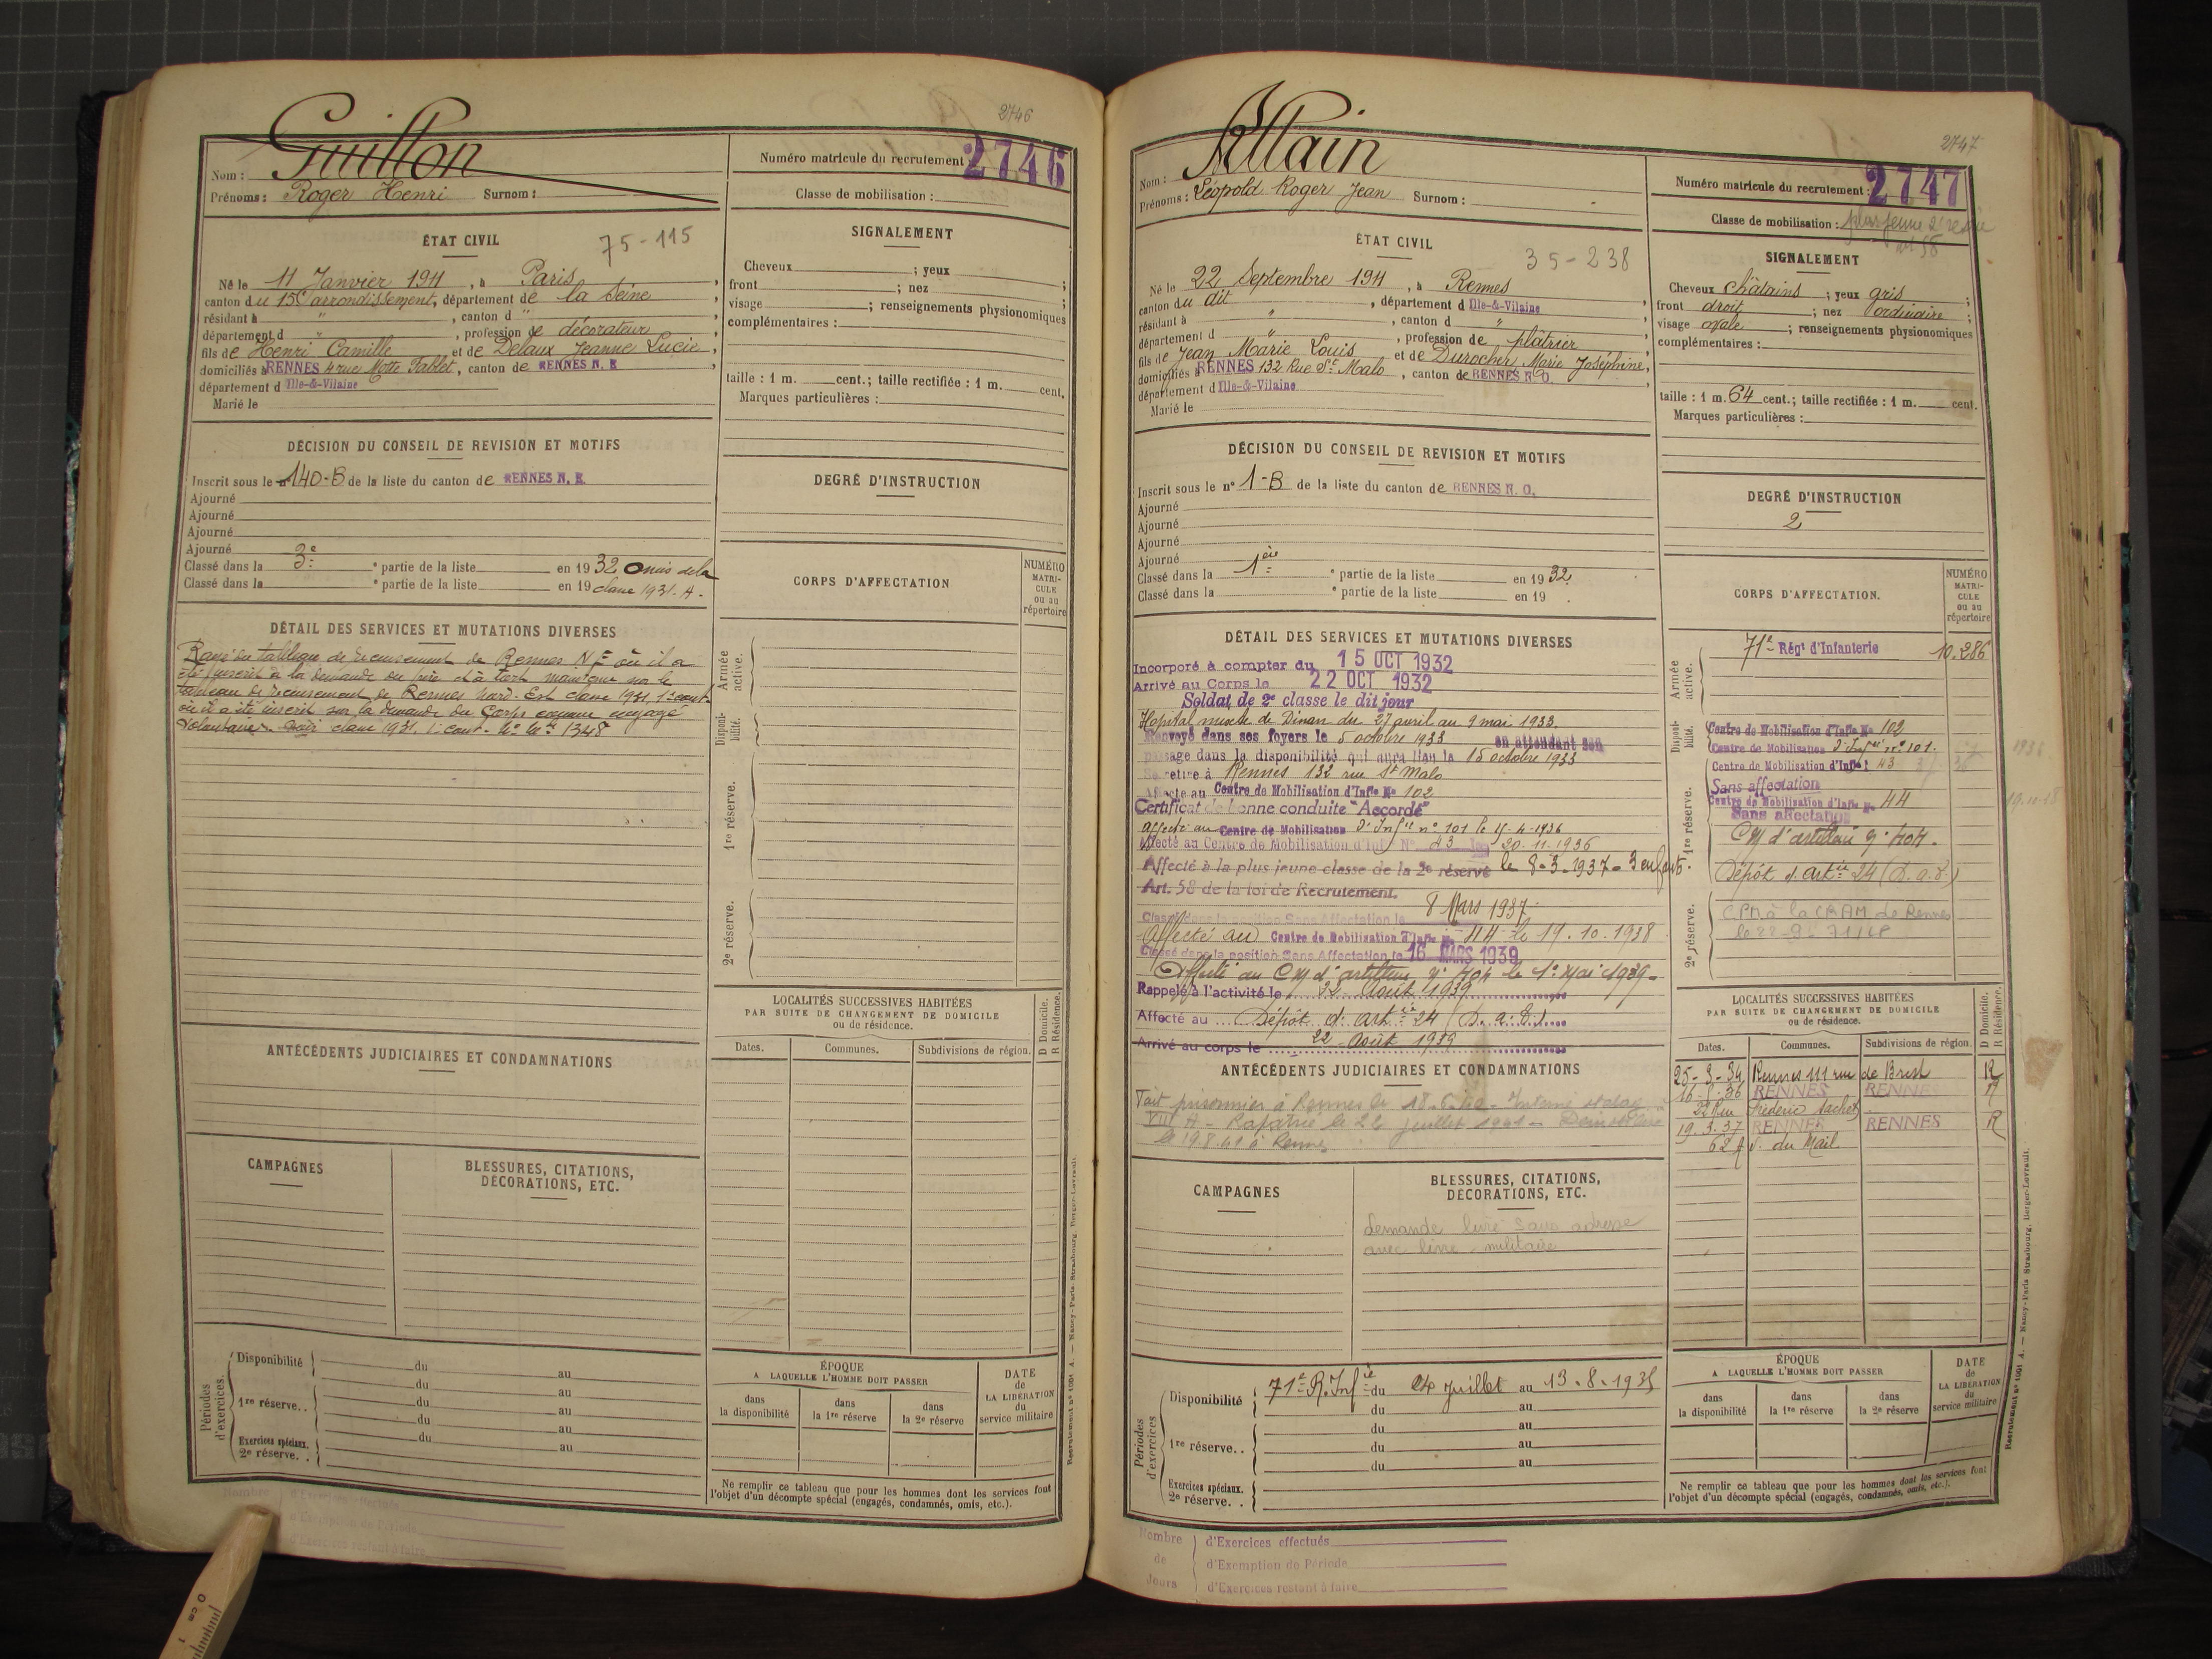 2746
Guillon
Nom :
Prénoms : Roger Henri Surnom :
Numéro matricule du recrutement : 2746
Classe de mobilisation :
ÉTAT CIVIL
75-115
Né le 11 Janvier 1911, à Paris,
canton du 15e arrondissement, département de la Seine
résidant à " , canton d " ,
département d " , profession de décorateur
fils de Henri Camille et de Delaux Jeanne Lucie,
domiciliés à RENNES 4 rue Motte Fablet, canton de RENNES N. E
département d Ille-&-Vilaine
Marié le
SIGNALEMENT
Cheveux ; yeux ;
front ; nez ;
visage ; renseignements physionomiques
complémentaires :
taille : 1 m. cent.; taille rectifiée : 1 m. cent.
Marques particulières :
DÉCISION DU CONSEIL DE REVISION ET MOTIFS
Inscrit sous le n° 140-B de la liste du canton de RENNES N. E.
Ajourné
Ajourné
Ajourné
Ajourné
Classé dans la 3e ° partie de la liste en 1932 omis de la
Classé dans la ° partie de la liste en 19 classe 1931. A.
DEGRÉ D'INSTRUCTION
CORPS D'AFFECTATION
NUMÉRO
MATRI-
CULE
ou au
répertoire
DÉTAIL DES SERVICES ET MUTATIONS DIVERSES
Rayé du tableau de recensement de Rennes N E où il a
été inscrit à la demande du et à tort sur le
tableau de recensement de Rennes Nord-Est classe 1931, 1e cont
où il a été inscrit sur la demande du Corps comme engagé
volontaire. Voir classe 1931. 1e cont. No le 1348
Armée
active.
Disponi-
bilité.
1re réserve.
2e réserve.
LOCALITÉS SUCCESSIVES HABITÉES
PAR SUITE DE CHANGEMENT DE DOMICILE
ou de résidence.
D Domicile.
R Résidence.
Dates.
Communes.
Subdivisions de région.
ANTÉCÉDENTS JUDICIAIRES ET CONDAMNATIONS
CAMPAGNES
BLESSURES, CITATIONS,
DÉCORATIONS, ETC.
Périodes
d'exercices.
Disponibilité
du au
du au
1re réserve..
du au
du au
Exercices spéciaux.
2e réserve. .
du au
ÉPOQUE
A LAQUELLE L'HOMME DOIT PASSER
dans
la disponibilité
dans
la 1re réserve
dans
la 2e réserve
DATE
de
LA LIBÉRATION
du
service militaire
Ne remplir ce tableau que pour les hommes dont les services font
l'objet d'un décompte spécial (engagés, condamnés, omis, etc.).
Recrutement n° 1001 A. — Nancy-Paris-Strasbourg, Berger-Levrault.
Nombre
d'Exercices effectués
d'Exemption de Période
d'Exercices restant à faire
2747
Allain
Nom :
Prénoms : Léopold Roger Jean Surnom :
Numéro matricule du recrutement : 2747
Classe de mobilisation : plus jeune 2e rés
art 58
ÉTAT CIVIL
35-238
Né le 22 Septembre 1911, à Rennes
canton du dit , département d Ille-&-Vilaine
résidant à " , canton d " ,
département d " , profession de plâtrier
fils de Jean Marie Louis et de Durocher Marie Joséphine,
domiciliés à RENNES 132 Rue St Malo, canton de RENNES N. O.
département d Ille-&-Vilaine
Marié le
SIGNALEMENT
Cheveux châtains ; yeux gris ;
front droit ; nez ordinaire ;
visage ovale ; renseignements physionomiques
complémentaires :
taille : 1 m. 64 cent.; taille rectifiée : 1 m. cent.
Marques particulières :
DÉCISION DU CONSEIL DE REVISION ET MOTIFS
Inscrit sous le n° 1-B de la liste du canton de RENNES N. O.
Ajourné
Ajourné
Ajourné
Ajourné
Classé dans la 1ère ° partie de la liste en 1932.
Classé dans la ° partie de la liste en 19 .
DEGRÉ D'INSTRUCTION
2
CORPS D'AFFECTATION.
NUMÉRO
MATRI-
CULE
ou au
répertoire
DÉTAIL DES SERVICES ET MUTATIONS DIVERSES
Incorporé à compter du 15 OCT 1932
Arrivé au Corps le 22 OCT 1932
Soldat de 2e classe le dit jour
Hopital mixte de Dinan du 27 avril au 9 mai 1933.
Renvoyé dans ses foyers le 5 octobre 1933 en attendant son
passage dans la disponibilité qui aura lieu le 15 octobre 1933
Se retire à Rennes 132 rue St Malo
Affecté au Centre de Mobilisation d'Infie No 102
Certificat de bonne conduite "Accordé"
Affecté au Centre de Mobilisation d'Infie n° 101 le 15-4-1936
Affecté au Centre de Mobilisation d'Inf N° 43 le 20.11.1936
Affecté à la plus jeune classe de la 2e réserve le 8-3-1937- 3 enfants.
Art. 58 de la loi de Recrutement.
Classé dans la position Sans Affectation le 8 Mars 1937
Affecté au Centre de Mobilisation d'Infie No 44 le 19.10.1938
Classé dans la position Sans Affectation le 16 MARS 1939
Affecté au C M d'artillerie n° 404 le 1er Mai 1939-
Rappelé à l'activité le 22 Août 1939
Affecté au Dépôt d' artie 24 (D. a. d.)
Arrivé au corps le 22 Août 1939
Armée
active.
71e Régt d'Infanterie 10.286
Disponi-
bilité.
Centre de Mobilisation d'Infie No 102
Centre de Mobilisation d'Infie n° 101.
1936
Centre de Mobilisation d'Infie 43
1re réserve.
Sans affectation
Centre de Mobilisation d'Infie No 44
Sans affectation
CM d'artillerie n° 404.
Dépôt d. artie 24 (D. a. d.)
2e réserve.
ANTÉCÉDENTS JUDICIAIRES ET CONDAMNATIONS
Fait prisonnier à Rennes le 18.6.40 - Interné stalag
VIII A - Rapatrié le 22 juillet 1941 - Démobilisé
le 19.8.41 à Rennes
LOCALITÉS SUCCESSIVES HABITÉES
PAR SUITE DE CHANGEMENT DE DOMICILE
ou de résidence.
D Domicile.
R Résidence.
Dates.
Communes.
Subdivisions de région.
25-3-34 Rennes 111 rue de Brest R
RENNES RENNES R
22 Rue Frédéric Sacher
19.3.37 RENNES RENNES R
62 du Mail
CAMPAGNES
BLESSURES, CITATIONS,
DÉCORATIONS, ETC.
demande livre sans adresse
avec livre militaire
Périodes
d'exercices
Disponibilité
71e R. Infie du 24 Juillet au 13-8-1935
du au
1re réserve..
du au
du au
du au
Exercices spéciaux.
2e réserve. .
ÉPOQUE
A LAQUELLE L'HOMME DOIT PASSER
dans
la disponibilité
dans
la 1re réserve
dans
la 2e réserve
DATE
de
LA LIBÉRATION
du
service militaire
Ne remplir ce tableau que pour les hommes dont les services font
l'objet d'un décompte spécial (engagés, condamnés, omis, etc.).
Recrutement n° 1001 A. — Nancy-Paris Strasbourg, Berger-Levrault.
Nombre
de
Jours
d'Exercices effectués
d'Exemption de Période
d'Exercices restant à faire
0 cm 1